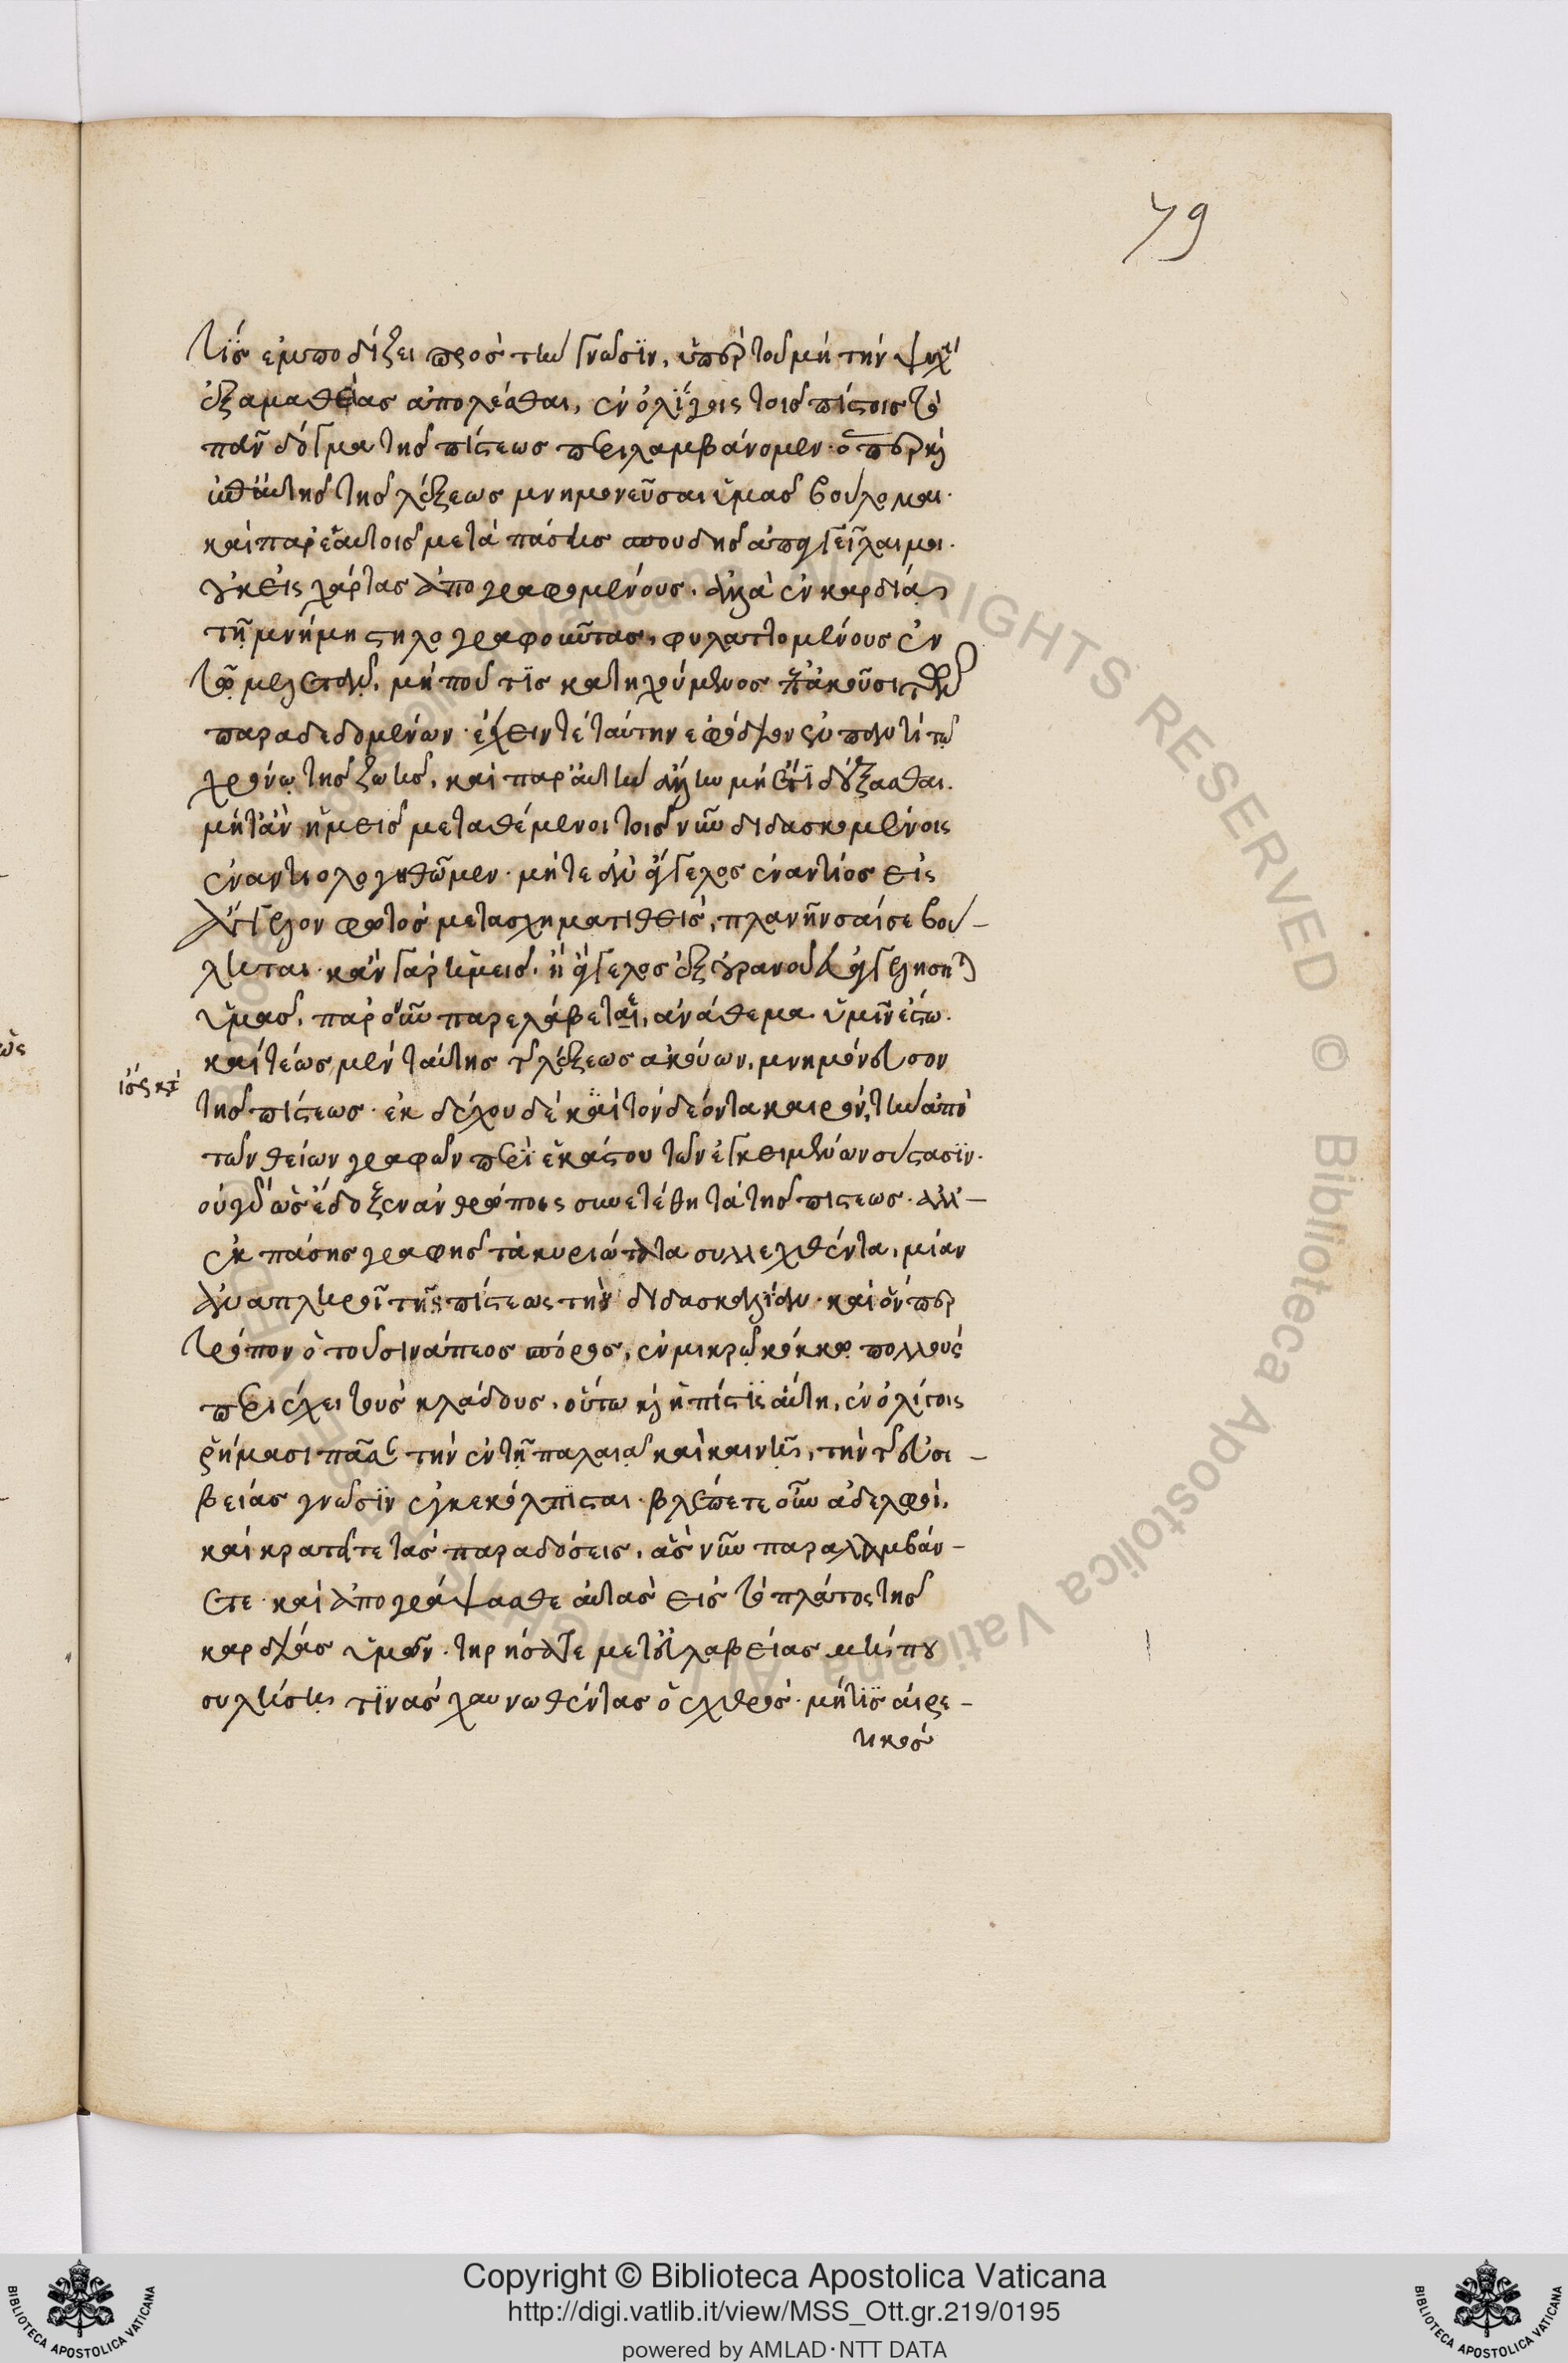 79
τίς ἐμποδίζει πρὸς τὴν γνῶσϊν, ὑπὲρ τοῦ μὴ τὴν ψυχὴν
ἐξ ἀμαθείας ἀπολέσθαι, ἐν ὀλίγοις τοῖς πίστοις τὸ
πᾶν δόγμα τῆς πίστεως περιλαμβάνομεν· ὅπερ καὶ
αὐτῆς τῆς λέξεως μνημονεῦσαι ὑμᾶς βούλομαι·
καὶ παρ' ἑαυτοῖς μετὰ πάσης σπουδῆς ἀπαγγεῖλαι μοι·
οὐκ εἰς χάρτας ἀπογραφομένους, ἀλλὰ ἐν καρδίᾳ
τῇ μνήμῃ στηλογραφοῦντας, φυλαττομένους ἐν
τῷ μελετᾶν, μή που τὶς κατηχούμενος ἐπακούσῃ τῶν
παραδεδομένων· ἔχειν τὲ ταύτην ἐφόδιον ἐν παντὶ τῷ
χρόνῳ τῆς ζωῆς, καὶ παρ' αὐτὴν ἄλλην μὴ ἔτϊ δέξασθαι.
μήτ' ἂν ἡμεῖς μεταθέμενοι τοῖς νῦν διδασκομένοις
ἐναντιολογηθῶμεν· μήτε ἂν ἄγγελος ἐναντίος εἰς
ἄγγελον φωτὸς μετασχηματισθεὶς, πλανῆσαί σε βού-
λεται· κἂν γὰρ ἡμεῖς, ἢ ἄγγελος ἐξ οὐρανοῦ εὐαγγελίσηται
ὑμᾶς, παρ' ὃ νῦν παρελάβεται, ἀνάθεμα ὑμῖν ἔστω·
καὶ τέως μὲν ταύτης τῆς λέξεως ἀκούων, μνημόνευσον
τῆς πίστεως· ἐκδέχου δὲ καὶ τὸν δέοντα καιρὸν, τὴν ἀπὸ
τῶν θείων γραφῶν περὶ ἑκάστου τῶν ἐγκειμένων σύστασϊν·
οὐ γὰρ ὡς ἔδοξεν ἀνθρώποις συνετέθη τὰ τῆς πίστεως· ἀλλ'-
ἐκ πάσης γραφῆς τὰ κυριώτατα συλλεχθέντα, μίαν
ἀναπληροῖ τῆς πίστεως τὴν διδασκαλίαν· καὶ ὅνπερ
τρόπον ὁ τοῦ σινάπεος σπόρος, ἐν μικρῷ κόκκῳ πολλοὺς
περιέχει τοὺς κλάδους, οὕτω καὶ ἡ πίστϊς αὕτη, ἐν ὀλίγοις
ῥήμασι πᾶσαν τὴν ἐν τῇ παλαιᾷ καὶ καινῇ, τὴν τῆς εὐσε-
βείας γνῶσϊν ἐγκεκόλπϊσται· βλέπετε οὖν ἀδελφοὶ,
καὶ κρατεῖτε τὰς παραδόσεις, ἃς νῦν παραλαμβάν-
ετε· καὶ ἀπογράψασθε αὐτὰς εἰς τὸ πλάτος τῆς
καρδίας ὑμῶν· τηρήσατε μετ' εὐλαβείας μή που
συλήσῃ τϊνὰς χαυνωθέντας ὁ ἐχθρός· μήτϊς αἱρε-
τικὸς
Copyright © Biblioteca Apostolica Vaticana
http://digi.vatlib.it/view/MSS_Ott.gr.219/0195
powered by AMLAD·NTT DATA